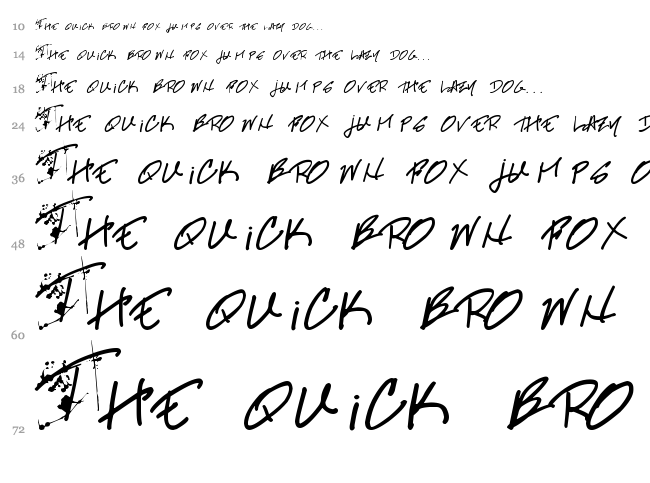 10 THE QUiCK BROWN FOX JUMPS OVER THE LAZY DOG...
14 THE QUiCK BROWN FOX JUMPS OVER THE LAZY DOG...
18 THE QUiCK BROWN FOX JUMPS OVER THE LAZY DOG...
24 THE QUiCK BROWN FOX JUMPS OVER THE LAZY D
36 THE QUiCK BROWN FOX JUMPS O
48 THE QUiCK BROWN FOX
60 THE QUiCK BROWN
72 THE QUiCK BRO